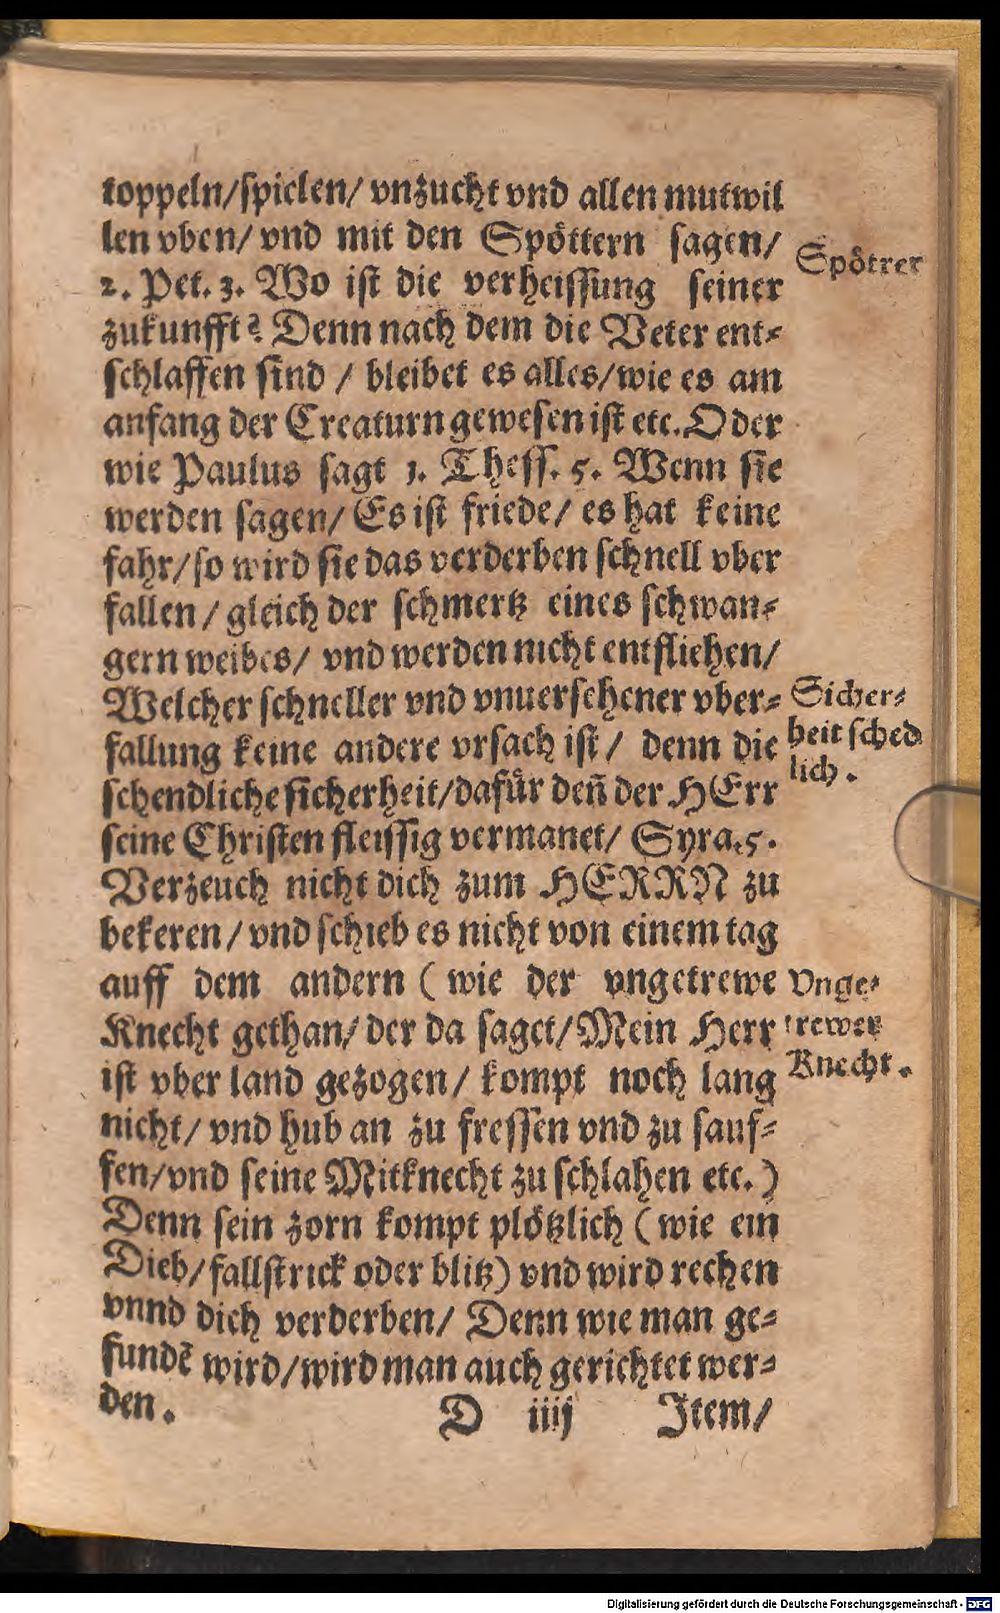 toppeln/spielen/ vnzucht vnd allen mutwil
len vben/ vnd mit den Spöttern sagen/
Spötter
2. Pet. 3. Wo ist die verheissung seiner
zukunfft? Denn nach dem die Veter ent⸗
schlaffen sind / bleibet es alles/wie es am
anfang der Creaturn gewesen ist etc. Oder
wie Paulus sagt 1. Thess. 5. Wenn sie
werden sagen/ Es ist friede/ es hat keine
fahr/so wird sie das verderben schnell vber
fallen/ gleich der schmertz eines schwan⸗
gern weibes/ vnd werden nicht entfliehen/
Welcher schneller vnd vnuersehener vber⸗
fallung keine andere vrsach ist/ denn die
schendliche sicherheit/dafür deñ der HErr
Sicher⸗
heit sched
lich.
seine Christen fleissig vermanet/ Syra.5.
Verzeuch nicht dich zum HERRN zu
bekeren/ vnd schieb es nicht von einem tag
auff dem andern (wie der vngetrewe
Knecht gethan/ der da saget/ Mein Herr
ist vber land gezogen/ kompt noch lang
Vnge⸗
trewer
Knecht.
nicht/ vnd hub an zu fressen vnd zu sauf⸗
fen/vnd seine Mitknecht zu schlahen etc.)
Denn sein zorn kompt plötzlich (wie ein
Dieb/fallstrick oder blitz) vnd wird rechen
vnnd dich verderben/ Denn wie man ge⸗
fundē wird/wird man auch gerichtet wer⸗
den.
D iiij
Item/
Digitalisierung gefördert durch die Deutsche Forschungsgemeinschaft - DFG